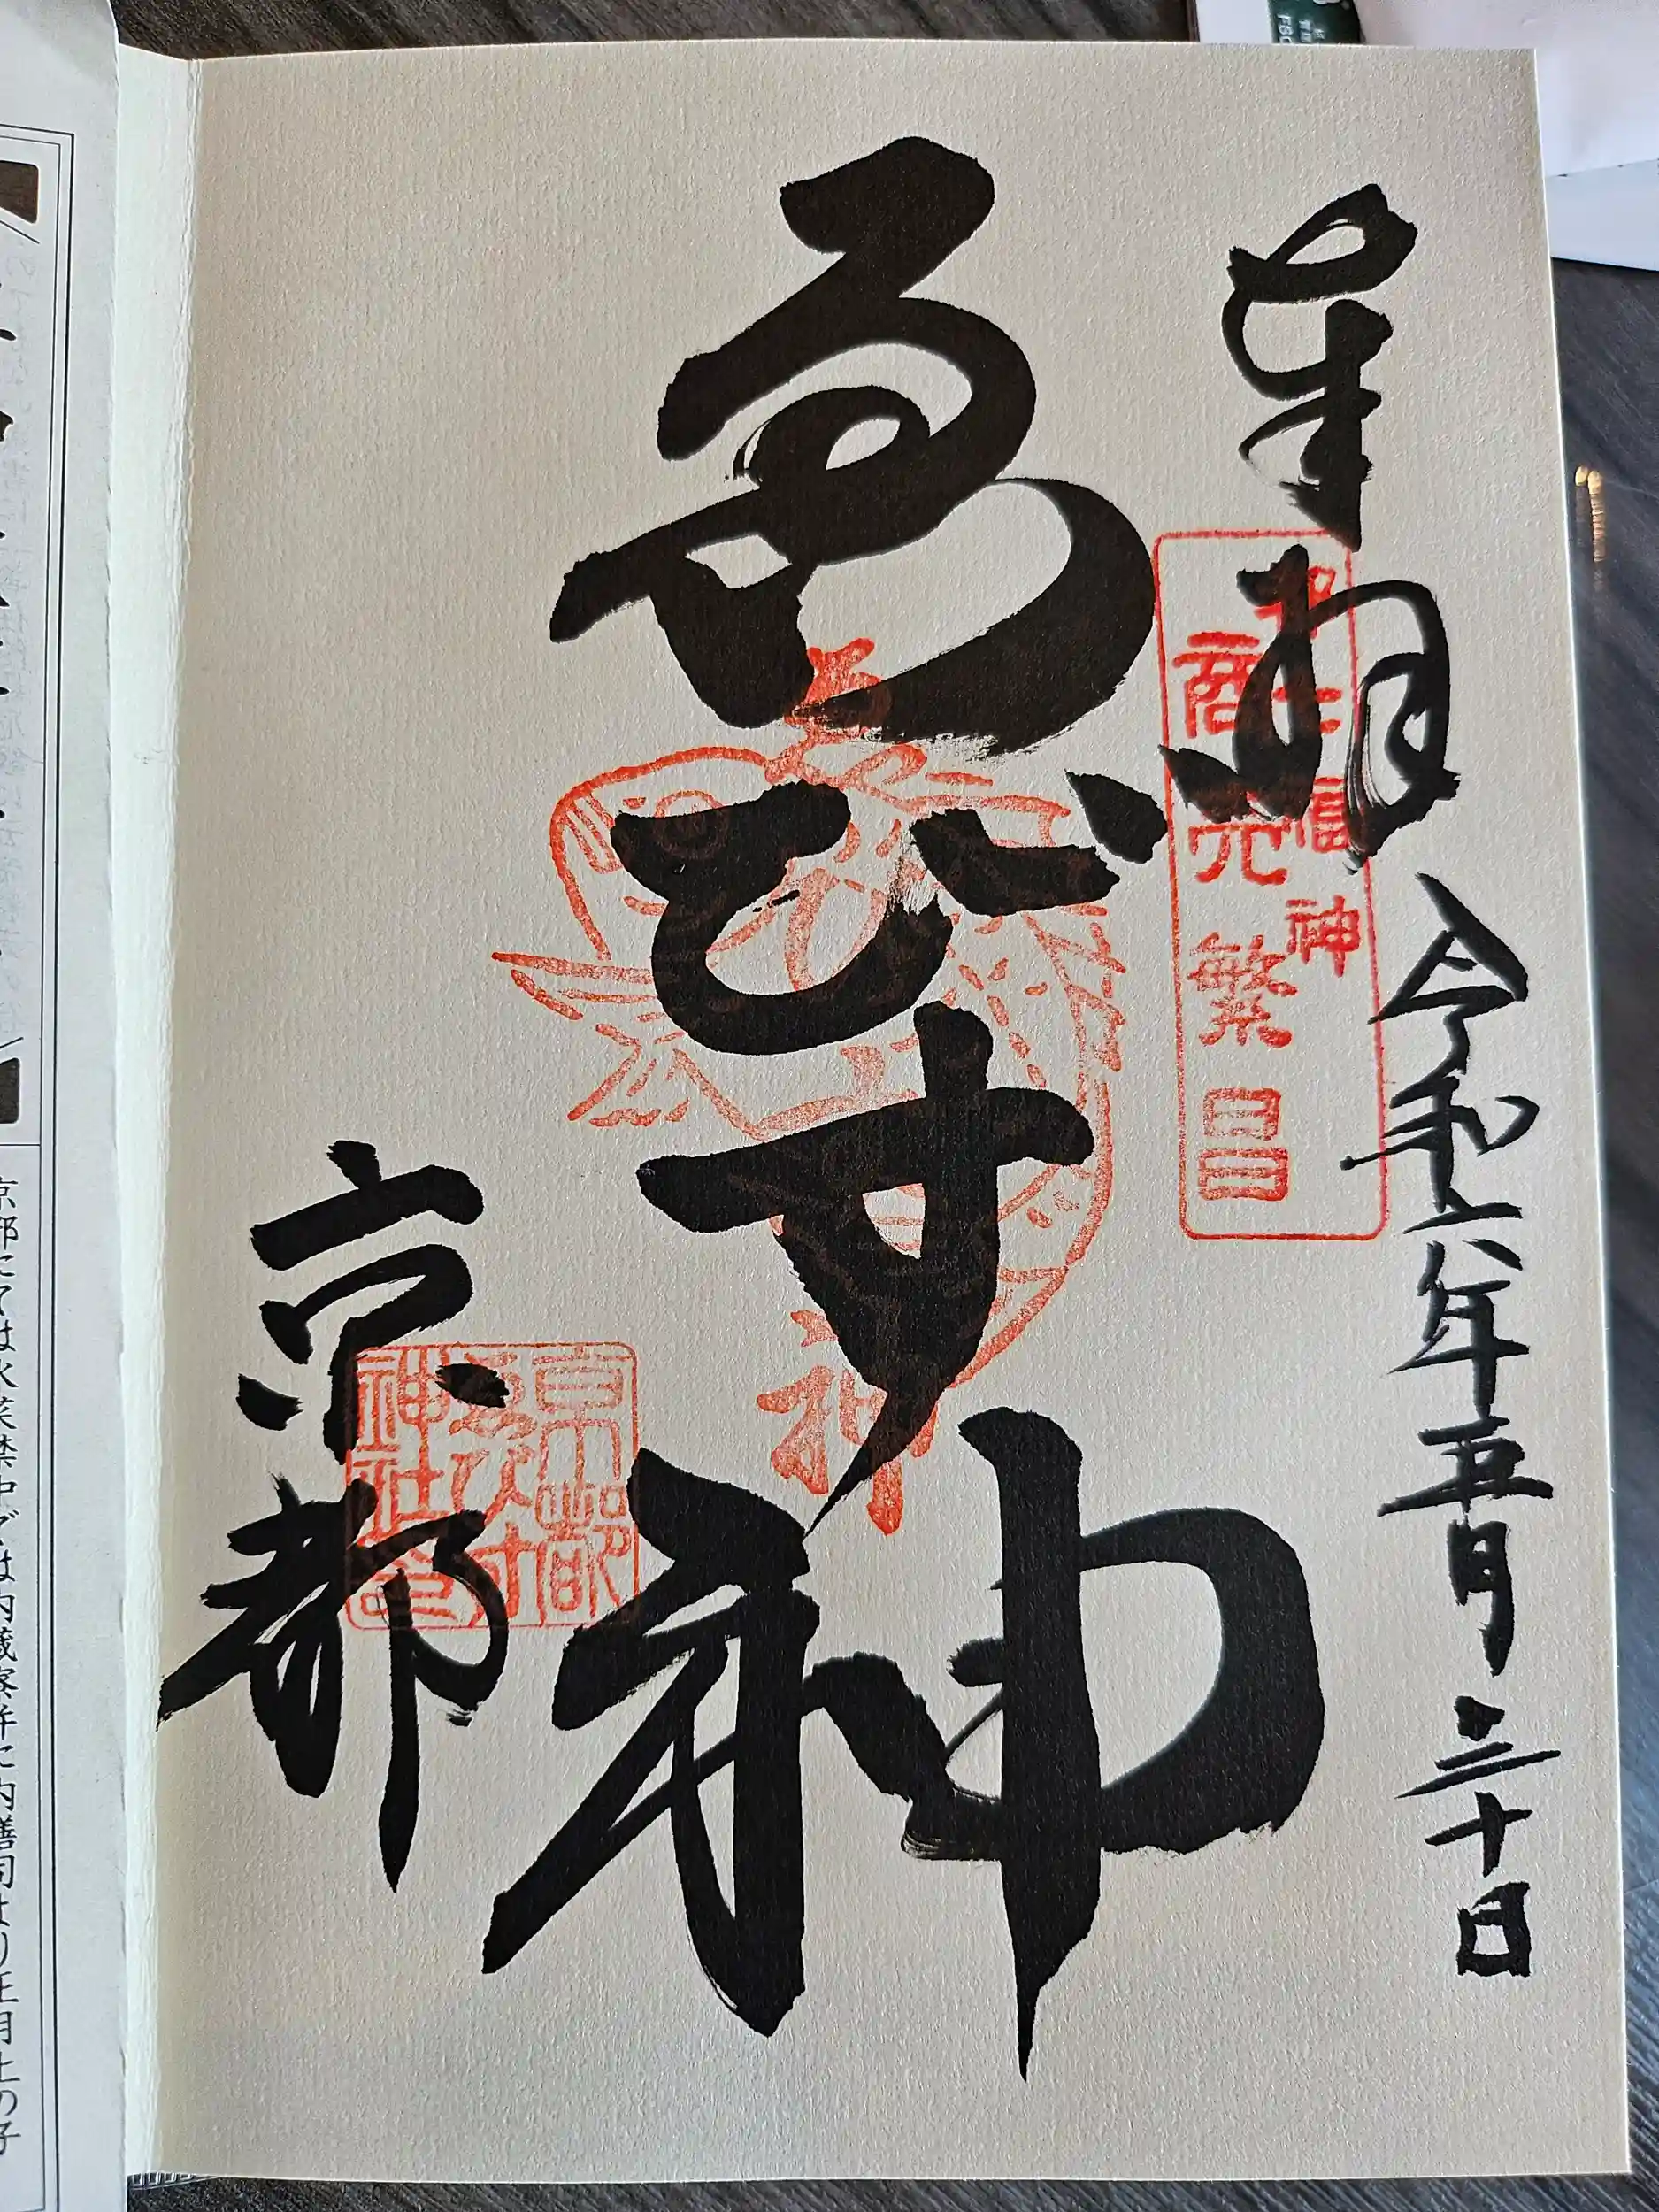 奉拝
令和六年五月三十日
七福神
商売繁昌
ゑびす神
ゑびす神
京都
京都ゑびす神社印
京都にては水菜禁中では内蔵寮并に内膳司より正月上の子